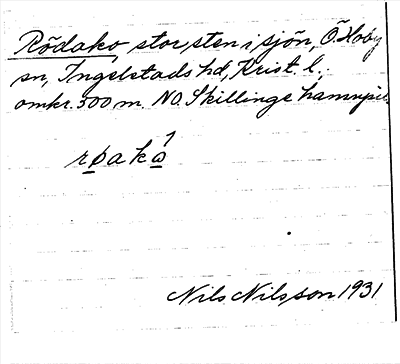 Rödako, stor sten i sjön, Ö. Hoby
sn, Ingelstads hd, Krist. l.,
omkr. 500 m. NO. Skillinge hamnpir.
røakå
Nils Nilsson 1931